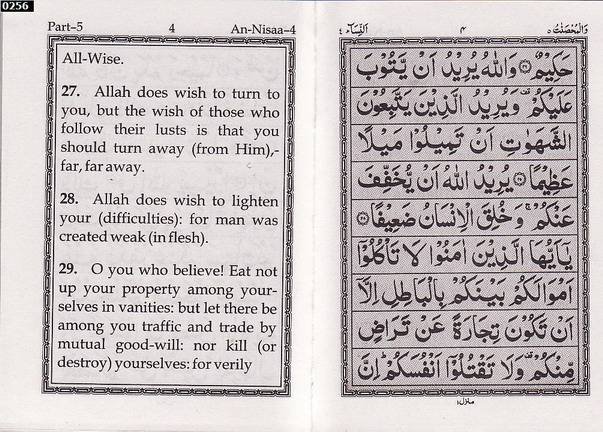 0256
Part–5 4 An-Nisaa–4
All-Wise.
27. Allah does wish to turn to
you, but the wish of those who
follow their lusts is that you
should turn away (from Him),-
far, far away.
28. Allah does wish to lighten
your (difficulties): for man was
created weak (in flesh).
29. O you who believe! Eat not
up your property among your-
selves in vanities: but let there be
among you traffic and trade by
mutual good-will: nor kill (or
destroy) yourselves: for verily
وَالْمُحْصَنٰتُ ٥ ۴ اَلنِّسَآء ٤
حَكِيْمٌ ﴿٢٦﴾ وَاللّٰهُ يُرِيْدُ اَنْ يَّتُوْبَ
عَلَيْكُمْ ۫ وَيُرِيْدُ الَّذِيْنَ يَتَّبِعُوْنَ
الشَّهَوٰتِ اَنْ تَمِيْلُوْا مَيْلًا
عَظِيْمًا ﴿٢٧﴾ يُرِيْدُ اللّٰهُ اَنْ يُّخَفِّفَ
عَنْكُمْ ۚ وَخُلِقَ الْاِنْسَانُ ضَعِيْفًا ﴿٢٨﴾
يٰۤاَيُّهَا الَّذِيْنَ اٰمَنُوْا لَا تَاْكُلُوْۤا
اَمْوَالَكُمْ بَيْنَكُمْ بِالْبَاطِلِ اِلَّاۤ
اَنْ تَكُوْنَ تِجَارَةً عَنْ تَرَاضٍ
مِّنْكُمْ ۫ وَلَا تَقْتُلُوْۤا اَنْفُسَكُمْ ؕ اِنَّ
منزل ١